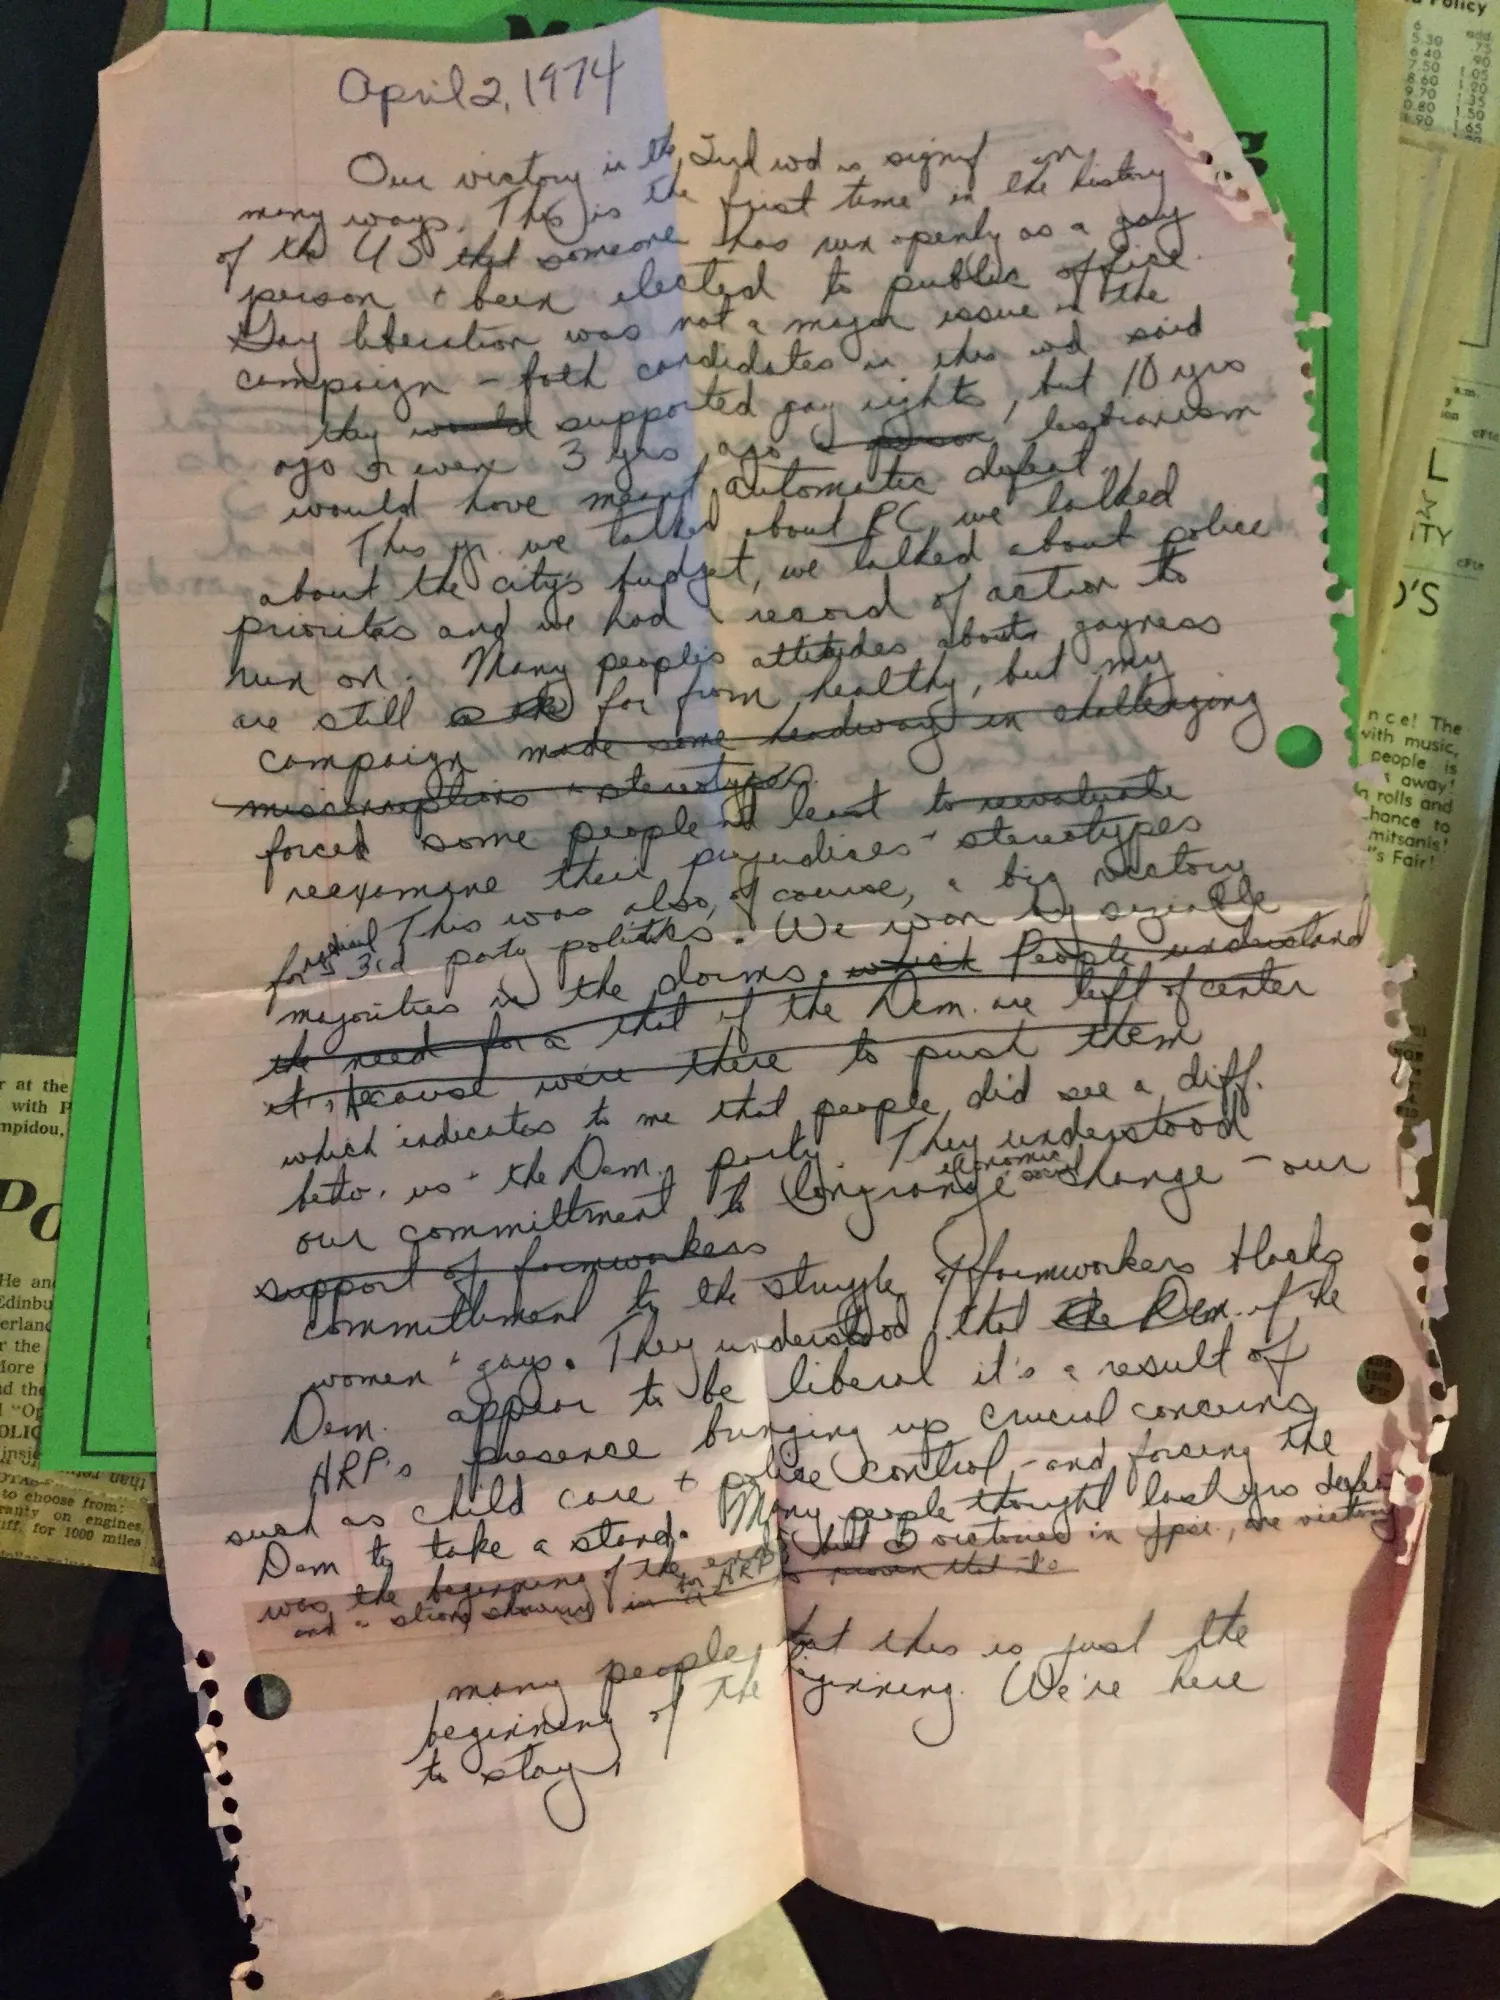 April 2, 1974
Our victory in the 2nd wd is signif in
many ways. This is the first time in the history
of the US that someone has run openly as a gay
person + been elected to public office.
Gay liberation was not a major issue in the
campaign - both candidates in this wd said
they would supported gay rights, but 10 yrs
ago or even 3 yrs ago a person lesbianism
would have meant automatic defeat.
This yr. we talked about RC, we talked
about the city's budget, we talked about police
priorites and we had a record of action to
run on. Many people's attitudes about gayness
are still far from healthy, but my
campaign made some headway in challenging
misconceptions + stereotypes.
forced some people at least to reevaluate
reexamine their prejudices + stereotypes
This was also, of course, a big victory
for radical 3rd party politics. We won by siziable
majorities in the dorms. which People understand
the need for a that if the Dem. are left of center
it's because we're there to push them
which indicates to me that people did see a diff.
betw. us + the Dem. party. They understood
our committment to longrange economic social change - our
support of farmworkers
committment to the struggle of farmworkers blacks
women + gays. They understood that the Dem. if the
Dem. appear to be liberal it's a result of
HRP's presence bringing up crucial concerns
such as child care + police control - and forcing the
Dem to take a stand. Many people thought last yrs defeat
was the beginning of the end but 3 victories in Ypsi., one victory
and a strong showing in for HRP proven that
many people, that this is just the
beginning of the beginning. We're here
to stay.
Policy
add
5.30 .75
6.40 .90
7.50 1.05
8.60 1.20
9.70 1.35
1.50
1.90 1.65
L
ITY
O'S
nce! The
with music,
people is
away!
rolls and
chance to
mitsanis!
's Fair!
r at the
with P
mpidou,
He and
Edinbu
erland
r the
More
nd the
to choose from:
ranty on engines,
iff, for 1000 miles